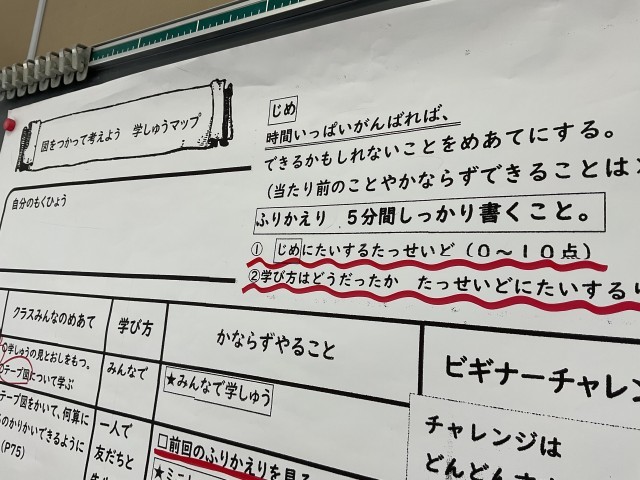 図をつかって考えよう 学しゅうマップ
じめ
時間いっぱいがんばれば、
できるかもしれないことをめあてにする。
(当たり前のことやかならずできることは
ふりかえり 5分間しっかり書くこと。
① じめにたいするたっせいど(0～10点)
②学び方はどうだったか たっせいどにたいする
自分のもくひょう
クラスみんなのめあて
学び方
かならずやること
ビギナーチャレン
①学しゅうの見とおしをもつ。
テープ図について学ぶ
みんなで
★みんなで学しゅう
テープ図をかいて、何算に
のかりかいできるように
(P75)
一人で
友だちと
□前回のふりかえりを見る
★ミニ
チャレンジは
どんどん